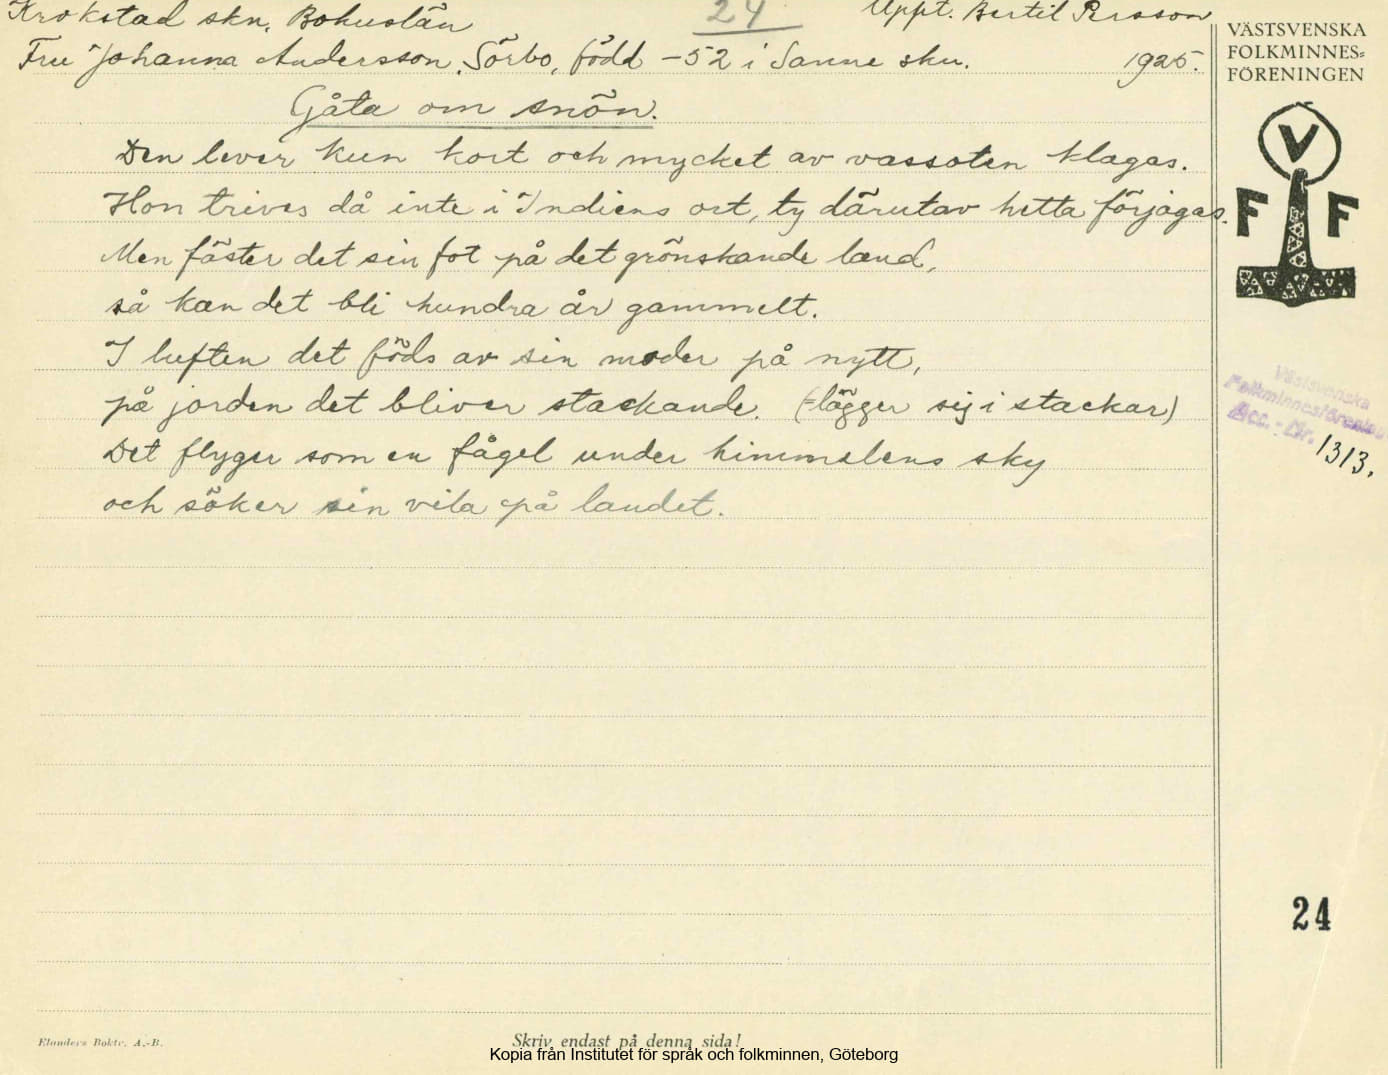 Krokstad skn. Bohuslän
24
Uppt. Bertil Persson
Fru Johanna Andersson, Sörbo, född -52 i Sanne skn.
1925.
Gåta om snön.
Den lever kun kort och mycket av vassoten klagas.
Hon trives då inte i Indiens ort, ty därutav hetta förjagas.
Men fäster det sin fot på det grönskande land,
så kan det bli hundra år gammelt.
I luften det föds av sin moder på nytt,
på jorden det bliver stackande. (=lägger sig i stackar)
Det flyger som en fågel under himmelens sky
och söker sin vila på landet.
VÄSTSVENSKA
FOLKMINNES=
FÖRENINGEN
V
F F
Västsvenska
Folkminnesförening
Acc. - Nr. 1313.
24
Elanders Boktr. A.-B.
Skriv endast på denna sida!
Kopia från Institutet för språk och folkminnen, Göteborg